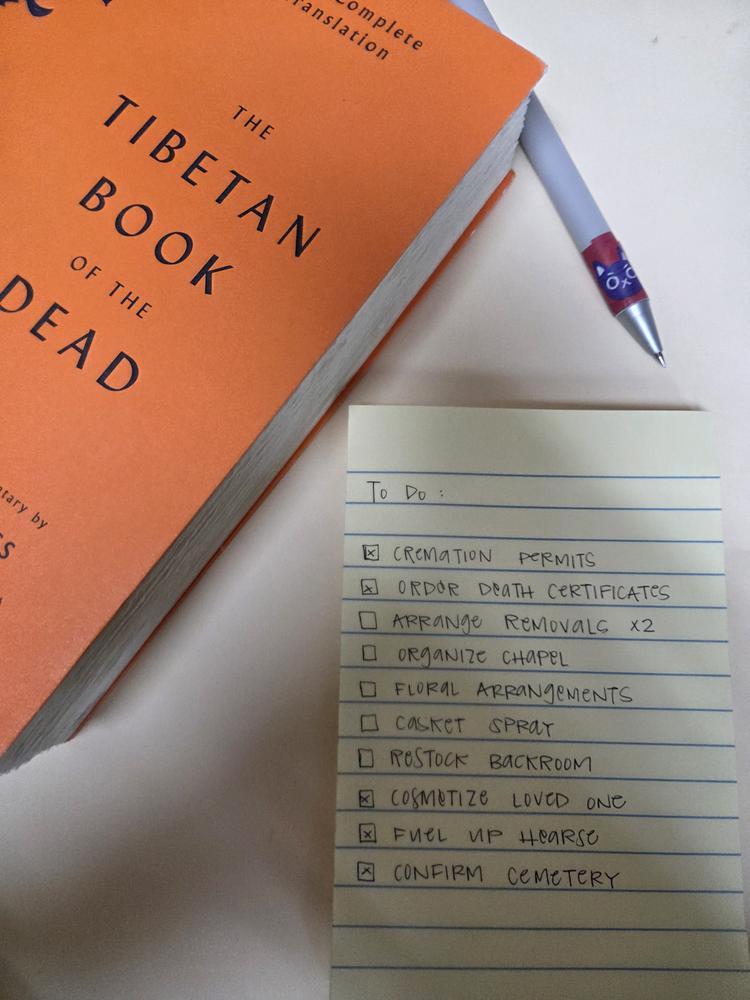 Complete
Translation
THE
TIBETAN
BOOK
OF THE
DEAD
by
To Do :
☒ CREMATION PERMITS
☒ ORDER DEATH CERTIFICATES
☐ ARRANGE REMOVALS x2
☐ ORGANIZE CHAPEL
☐ FLORAL ARRANGEMENTS
☐ CASKET SPRAY
☐ RESTOCK BACKROOM
☒ COSMETIZE LOVED ONE
☒ FUEL UP HEARSE
☒ CONFIRM CEMETERY